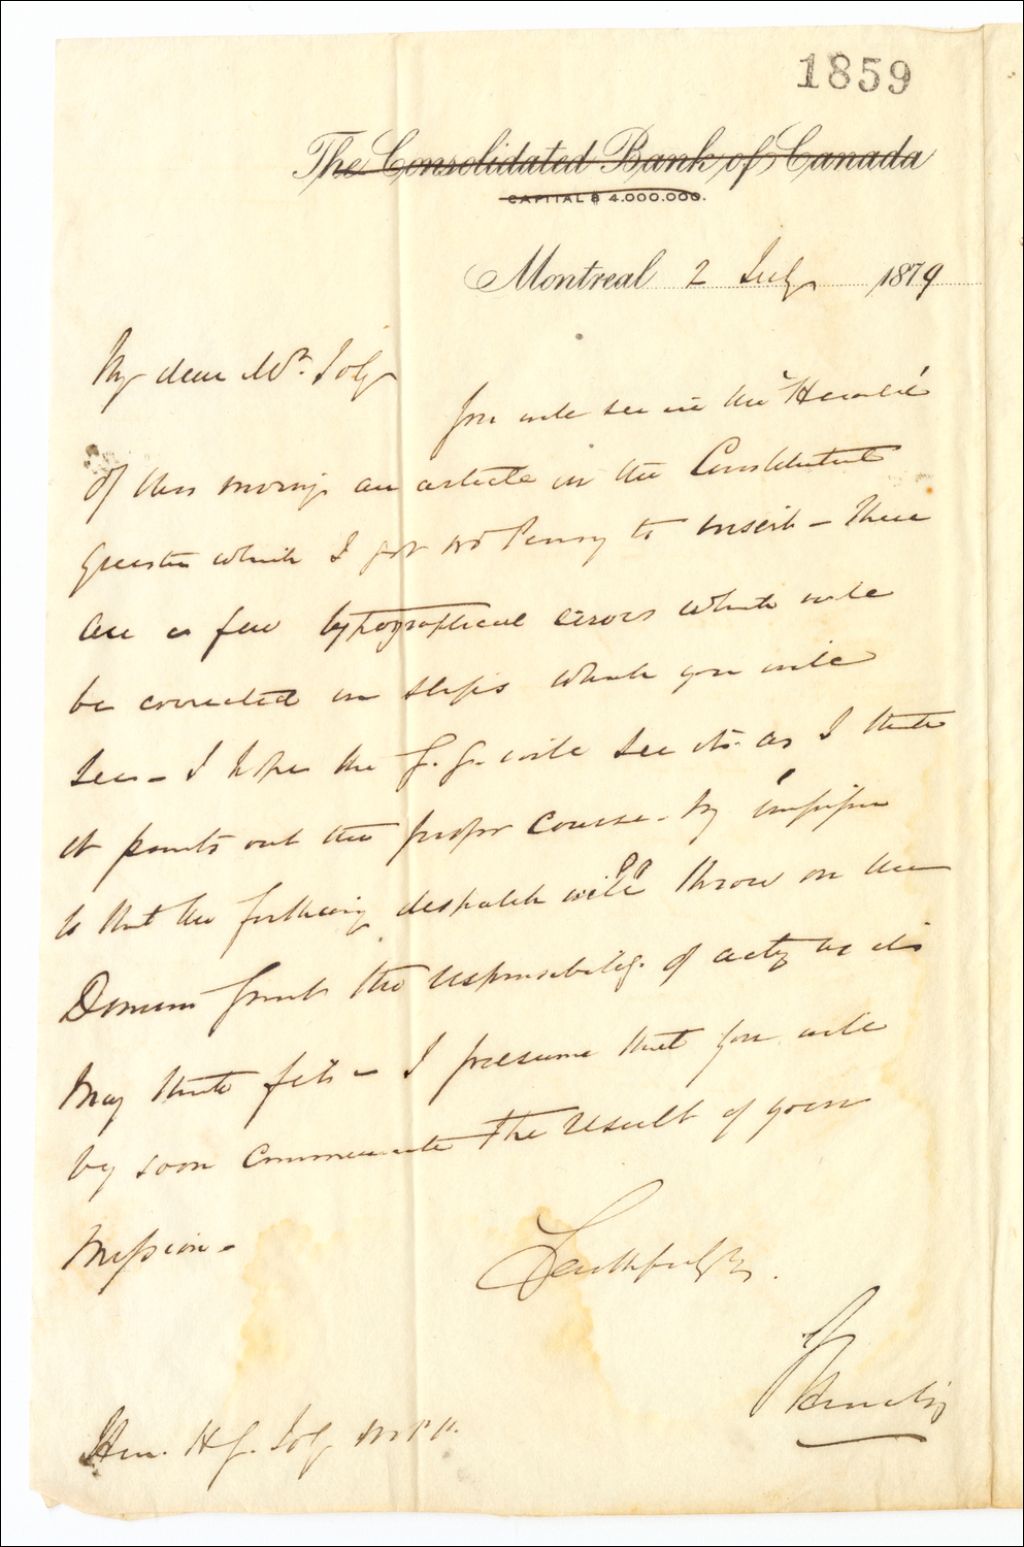 1859
The Consolidated Bank of Canada
CAPITAL $ 4.000.000.
Montreal 2 July 1879
My dear Mr. Joly
You will see in the "Herald"
of this morning an article on the Constitutional
question which I got Mr Penny to insert - There
are a few typographical errors which will
be corrected in slips which you will
see - I hope the G. G. will see it as I think
it points out the proper course. My impression
is that the forthcoming despatch will throw on the
Dominion Govmt the responsibility of acting as it
may think fit - I presume that you will
by soon communicate the result of your
mission -
Faithfully
Hon. H G. Joly M.P.P.